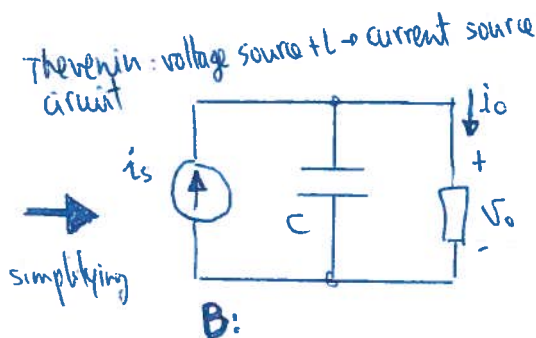 Thevenin: voltage source + L → current source
circuit
io
is
+
C
Vo
-
simplifying
B: